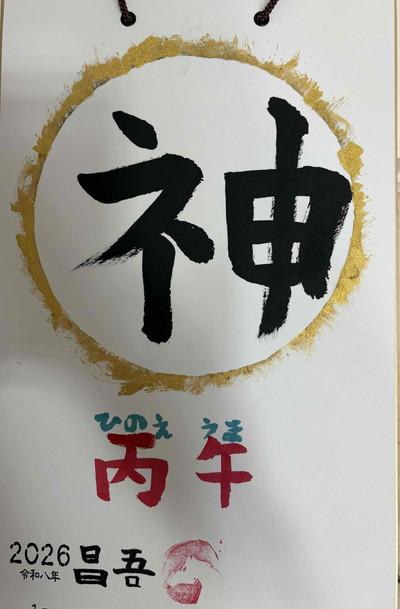 神
ひのえ うま
丙午
2026 昌吾
令和八年